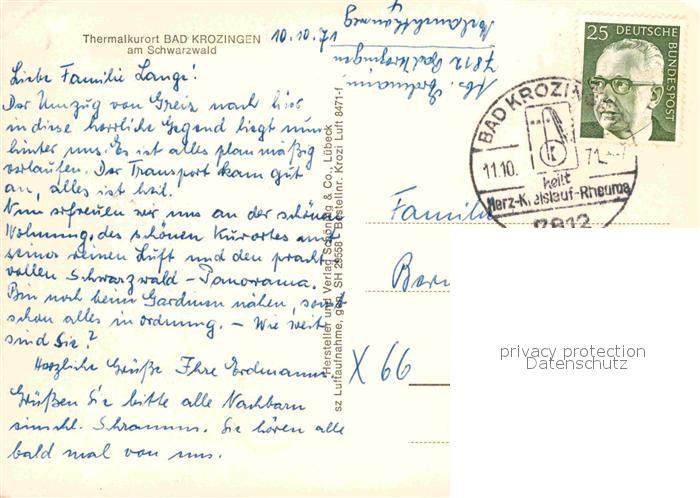 Thermalkurort BAD KROZINGEN
am Schwarzwald
10.10.71
Liebe Familie Lange!
Der Umzug von Greiz nach hier
in diese herrliche Gegend liegt nun
hinter uns. Es ist alles planmäßig
verlaufen. Der Transport kam gut
an, alles ist heil.
Nun erfreuen wir uns an der schönen
Wohnung, des schönen Kurortes mit
seiner reinen Luft und den pracht-
vollen Schwarzwald-Panorama.
Bin noch beim Gardinen nähen, sonst
schon alles in Ordnung. – Wie weit
sind Sie?
Herzliche Grüße Ihre Erdmanns.
Grüßen Sie bitte alle Nachbarn
einschl. Schramms. Sie hören alle
bald mal von uns.
Abs. Erdmann
7812 Bad Krozingen
Hersteller und Verlag Schöning & Co., Lübeck
sz Luftaufnahme, gen. SH 29558 Bestellnr. Krozi Luft 8471-f
25 DEUTSCHE
BUNDESPOST
BAD KROZINGEN
11.10. 71
heilt
Herz-Kreislauf-Rheuma
7812
Familie
X 66
privacy protection
Datenschutz